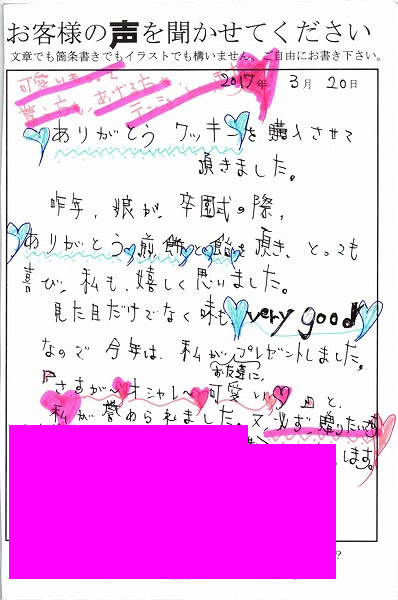 お客様の声を聞かせてください
文章でも箇条書きでもイラストでも構いません。ご自由にお書き下さい。
可愛い
2017年 3月 20日
ありがとう クッキーを購入させて
頂きました。
昨年、娘が、卒園式の際、
ありがとう煎餅と飴を頂き、とっても
喜び、私も、嬉しく思いました。
見た目だけでなく味も very good
なので 今年は、私がプレゼントしました。
お友達に、
『さすが〜オシャレ〜可愛い』と、
私が誉められました。又、必ず、贈りたいと
ます。
?